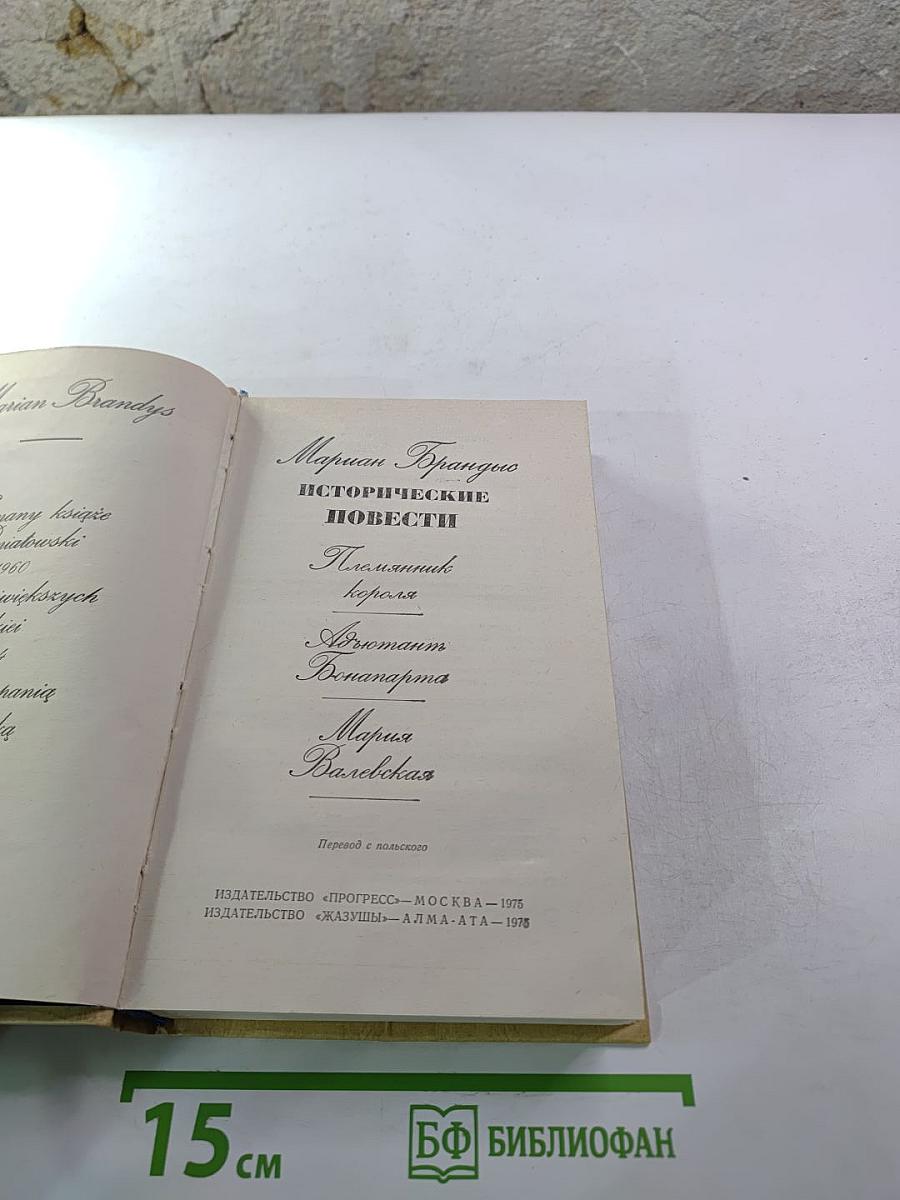 Marian Brandys
książę
1960
Мариан Брандыс
ИСТОРИЧЕСКИЕ
ПОВЕСТИ
Племянник
короля
Адъютант
Бонапарта
Мария
Валевская
Перевод с польского
ИЗДАТЕЛЬСТВО «ПРОГРЕСС»—МОСКВА—1975
ИЗДАТЕЛЬСТВО «ЖАЗУШЫ»—АЛМА-АТА—1975
15 см
БФ БИБЛИОФАН